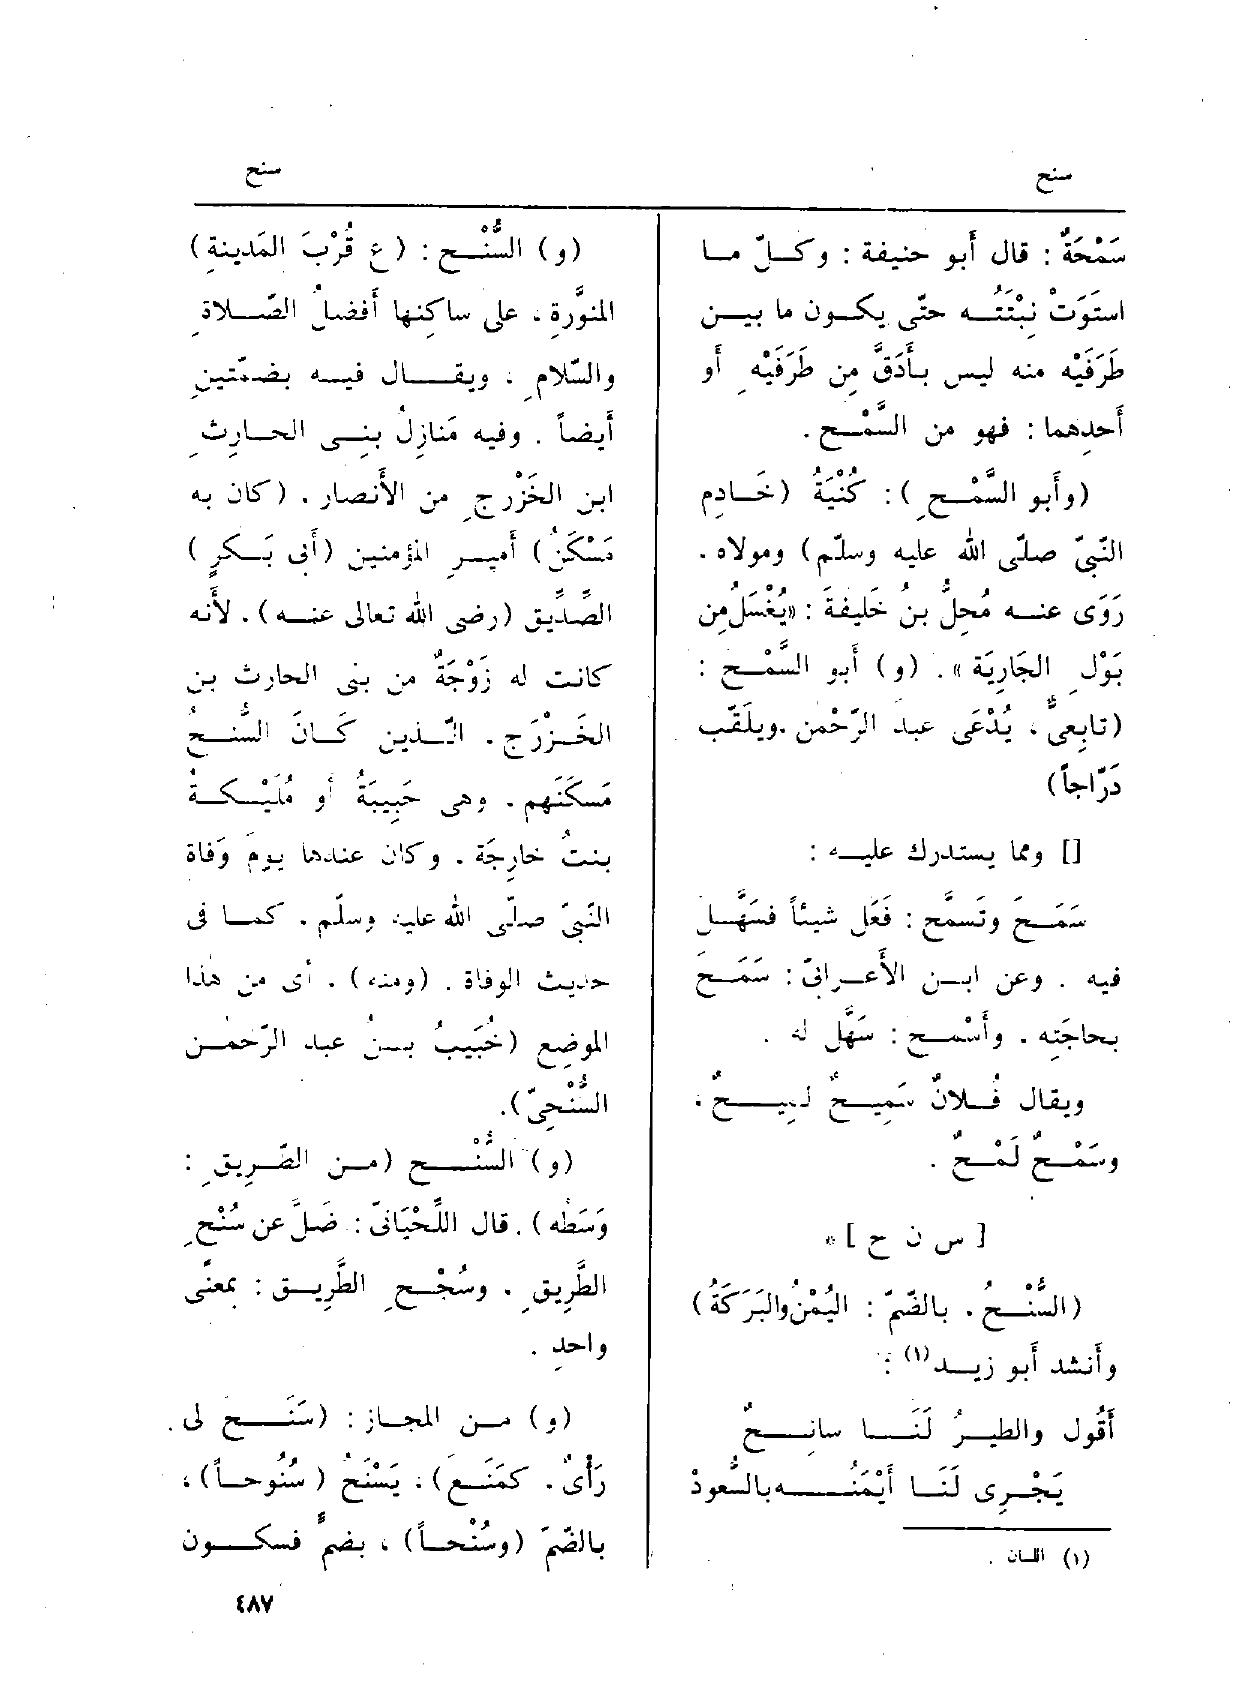 سنح
سنح
سَمْحَةٌ : قال أَبو حنيفة : وكلّ ما
استَوَتْ نِبْتَتُه حتّى يكون ما بين
طَرَفَيْه منه ليس بأَدَقَّ مِن طَرَفَيْهِ أَو
أَحدِهما : فهو من السَّمْح .
(وأَبو السَّمْحِ ) : كُنْيَةُ (خَادِم
النَّبيّ صلّى الله عليه وسلّم) ومولاه .
رَوَى عنه مُحِلُّ بنُ خَلِيفَةَ : «يُغْسَلُ مِن
بَوْلِ الجَارِيَة» . (و) أَبو السَّمْح :
(تابِعىٌّ ، يُدْعَى عبد الرّحمن . ويلَقَّب
دَرّاجاً)
[] ومما يستدرك عليه :
سَمَحَ وتَسمَّح : فَعَل شيئاً فسَهَّل
فيه . وعن ابن الأَعرابىّ : سَمَحَ
بحاجَتِه . وأَسْمح : سَهَّل له .
ويقال فُلانٌ سَمِيحٌ لَمِيحٌ ،
وسَمْحٌ لَمْحٌ .
[ س ن ح ] *
(السُّنْحُ . بالضّمّ : اليُمْنُ والبَرَكَةُ)
وأَنشد أَبو زيد(١) :
أَقُول والطيرُ لَنَا سانِحٌ
يَجْرِى لَنَا أَيْمَنُه بالسُّعودْ
(١) اللسان .
(و) السُّنْح : (ع قُرْبَ المَدينةِ)
المنوَّرةِ ، على ساكنها أَفضلُ الصّلاةِ
والسّلامِ . ويقال فيه بضمّتينِ
أَيضاً . وفيه مَنازِلُ بنِى الحارِثِ
ابن الخَزْرجِ من الأَنصار . (كان به
مَسْكَنُ) أَميرِ المؤمنين (أَبى بَكرٍ )
الصّدِّيق (رضى الله تعالى عنه) . لأَنه
كانت له زَوْجَةٌ من بنى الحارث بن
الخَزْرَج . الّذين كَانَ السُّنحُ
مَسكَنَهم . وهى حَبِيبَةُ أَو مُلَيْكةُ
بنتُ خارِجَة . وكان عندها يومَ وَفاة
النّبىّ صلّى الله عليه وسلّم . كما فى
حديث الوفاة . (ومنه) . أَى من هٰذا
الموضِع (خُبَيبُ بنُ عبد الرّحمٰن
السُّنْحىّ ) .
(و) السُّنْح (من الطَّرِيقِ :
وَسَطُه) . قال اللِّحْيَانىّ : ضَلَّ عن سُنْحِ
الطَّرِيقِ . وسُجْحِ الطَّرِيق : بمعنًى
واحدٍ .
(و) من المجاز : (سَنَحَ لى
رَأْىٌ . كمَنَع) ، يَسْنَحُ (سُنُوحاً) ،
بالضّمّ (وسُنْحاً) ، بضمٍّ فسكون
٤٨٧